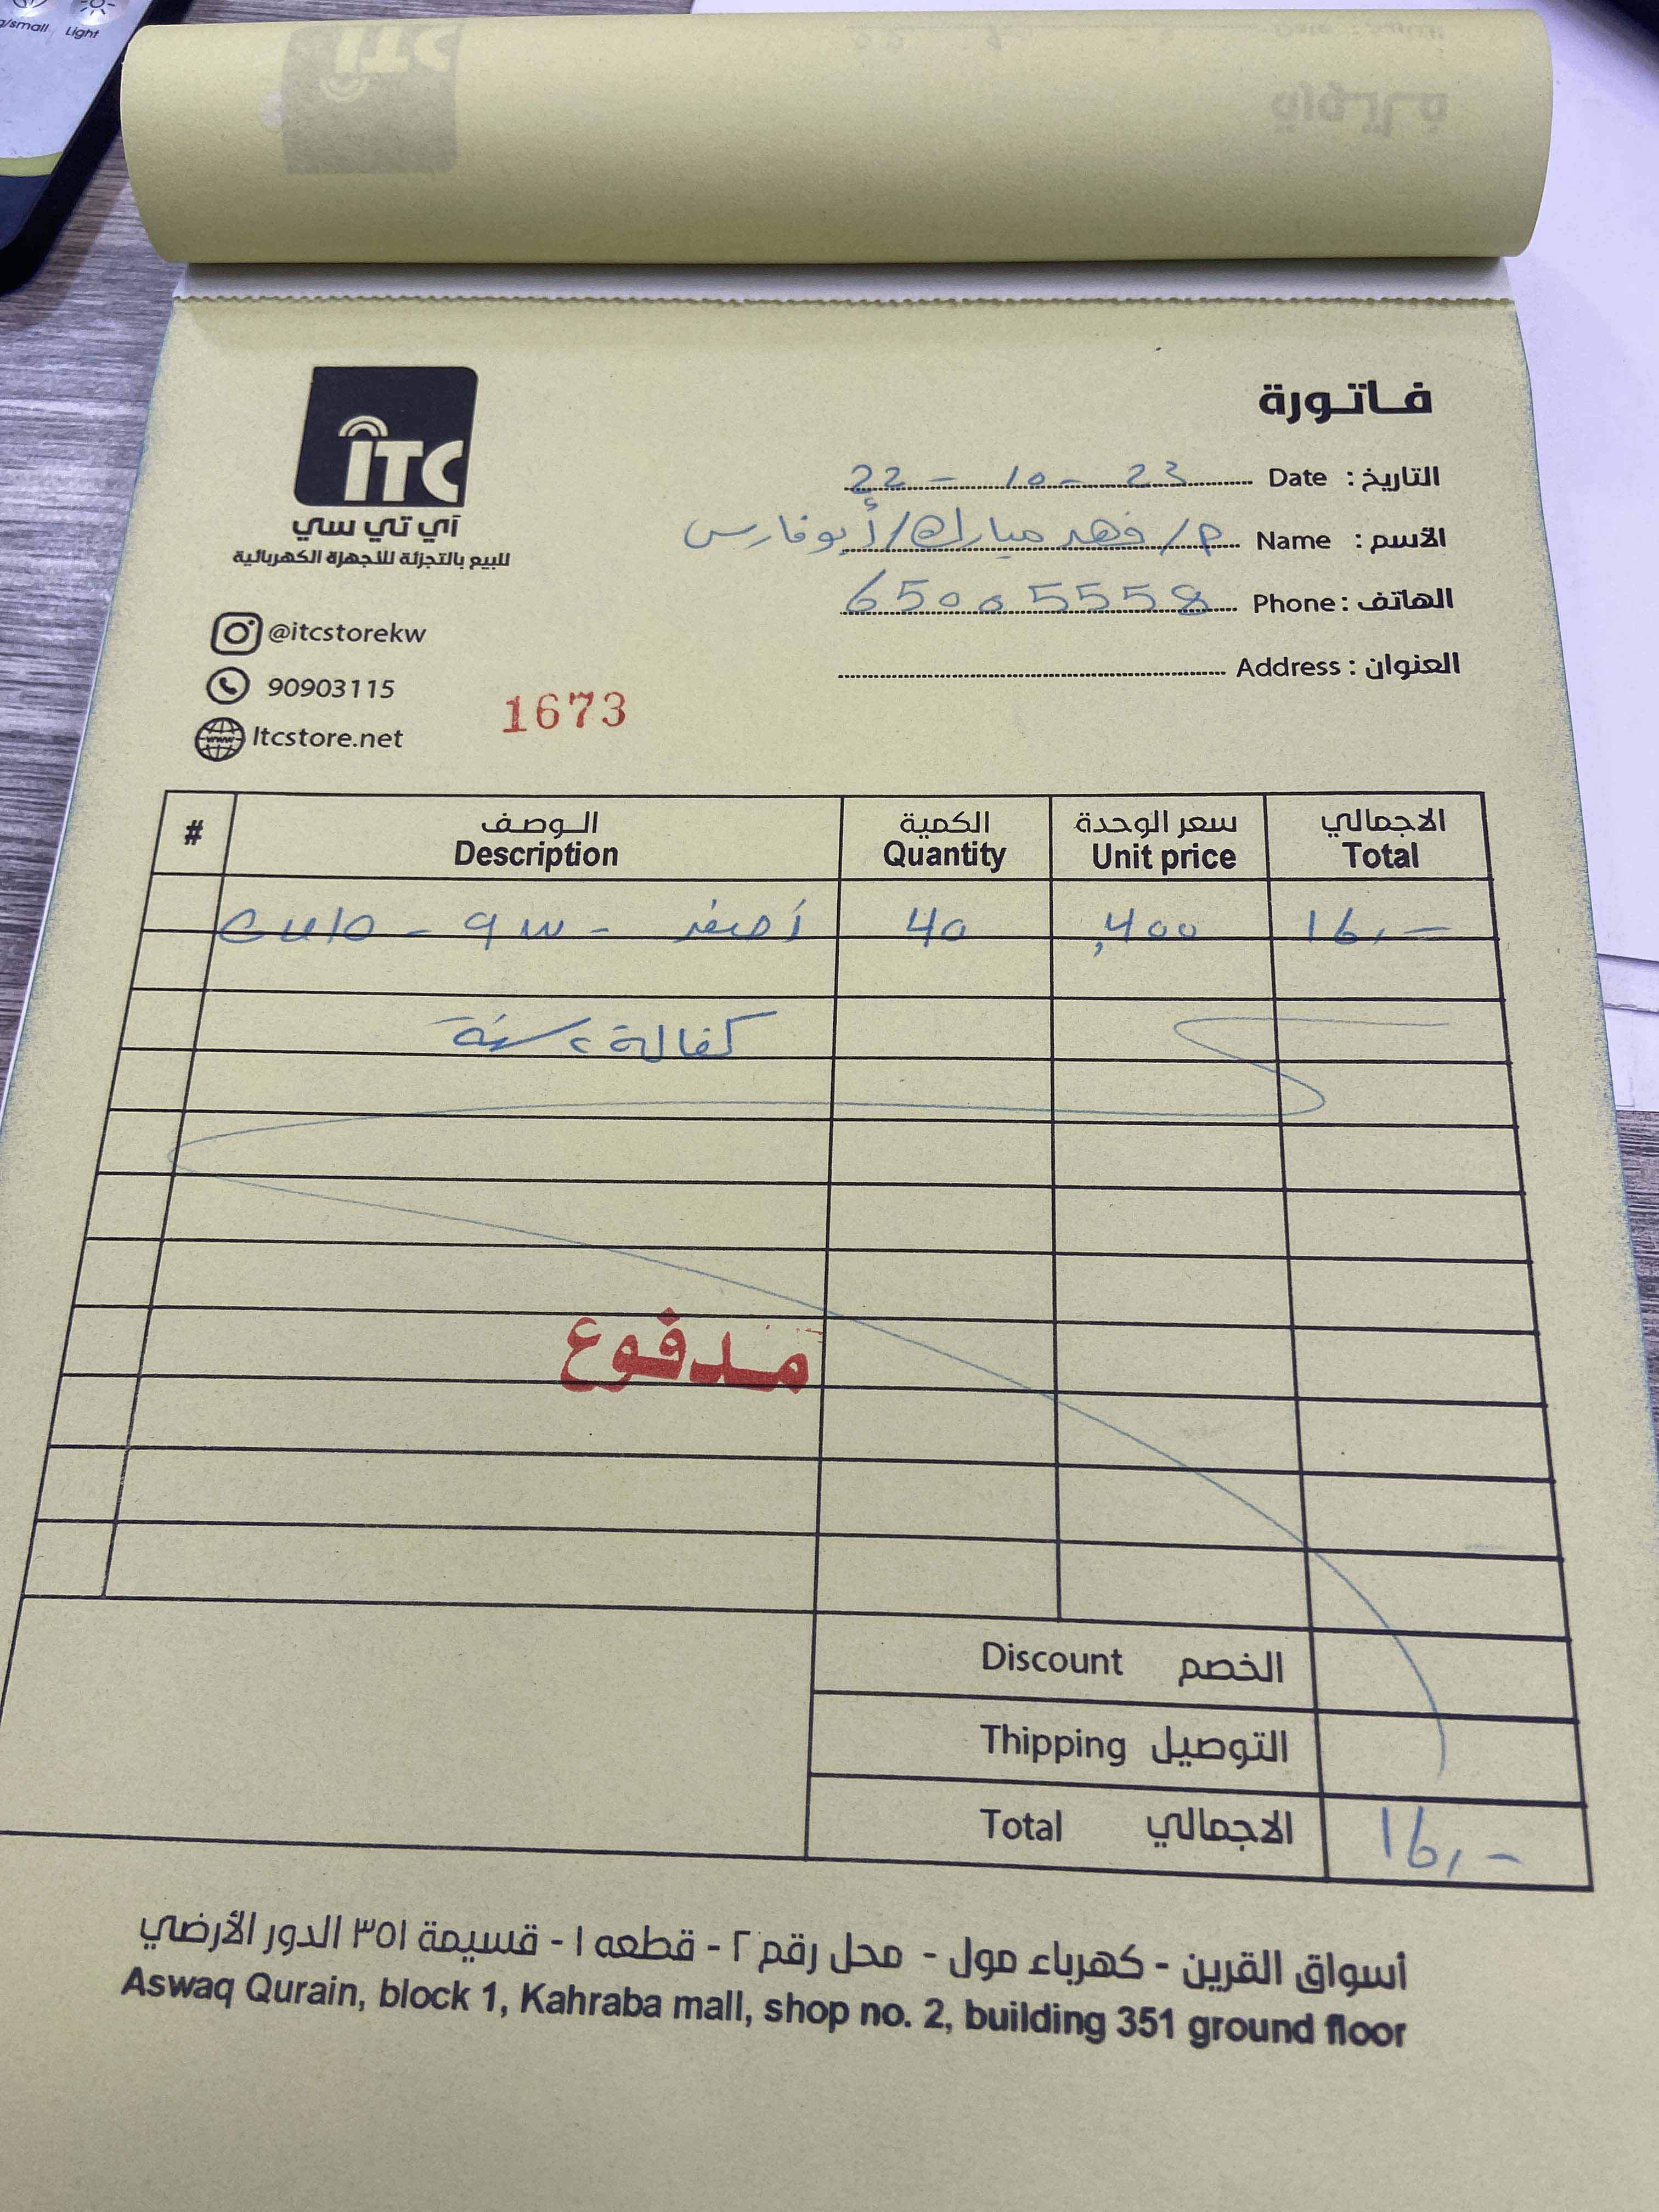 g/small Light
iTC
آي تي سي
للبيع بالتجزئة للأجهزة الكهربائية
@itcstorekw
90903115
Itcstore.net
1673
فاتورة
التاريخ : Date 22 - 10 - 23
الأسم : Name م/ فهد مبارك/أبوفارس
الهاتف : Phone 65005558
العنوان : Address
# الوصف الكمية سعر الوحدة الاجمالي
Description Quantity Unit price Total
- 9W - أصفر 40 ,400 16,-
كفالة ٢ سنة
مدفوع
Discount الخصم
Thipping التوصيل
Total الاجمالي 16,-
أسواق القرين - كهرباء مول - محل رقم ٢ - قطعه ١ - قسيمة ٣٥١ الدور الأرضي
Aswaq Qurain, block 1, Kahraba mall, shop no. 2, building 351 ground floor